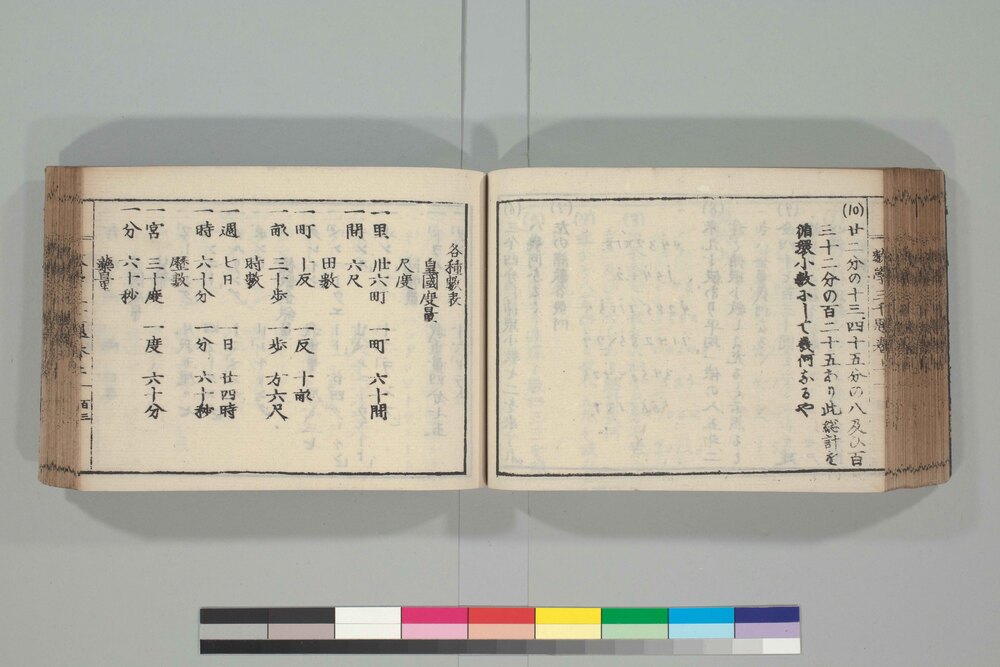 (10) 廿二分の十三四十五分の八及ひ百
三十二分の百二十五あり此総計を
循環小數にして幾何なるや
各種數表
皇國度量
尺度
一里 卅六町 一町 六十間
一間 六尺
田數
一町 十反 一反 十畝
一畝 三十歩 一歩 方六尺
時數
一週 七日 一日 廿四時
一時 六十分 一分 六十秒
暦數
一宮 三十度 一度 六十分
一分 六十秒
藥量
百三